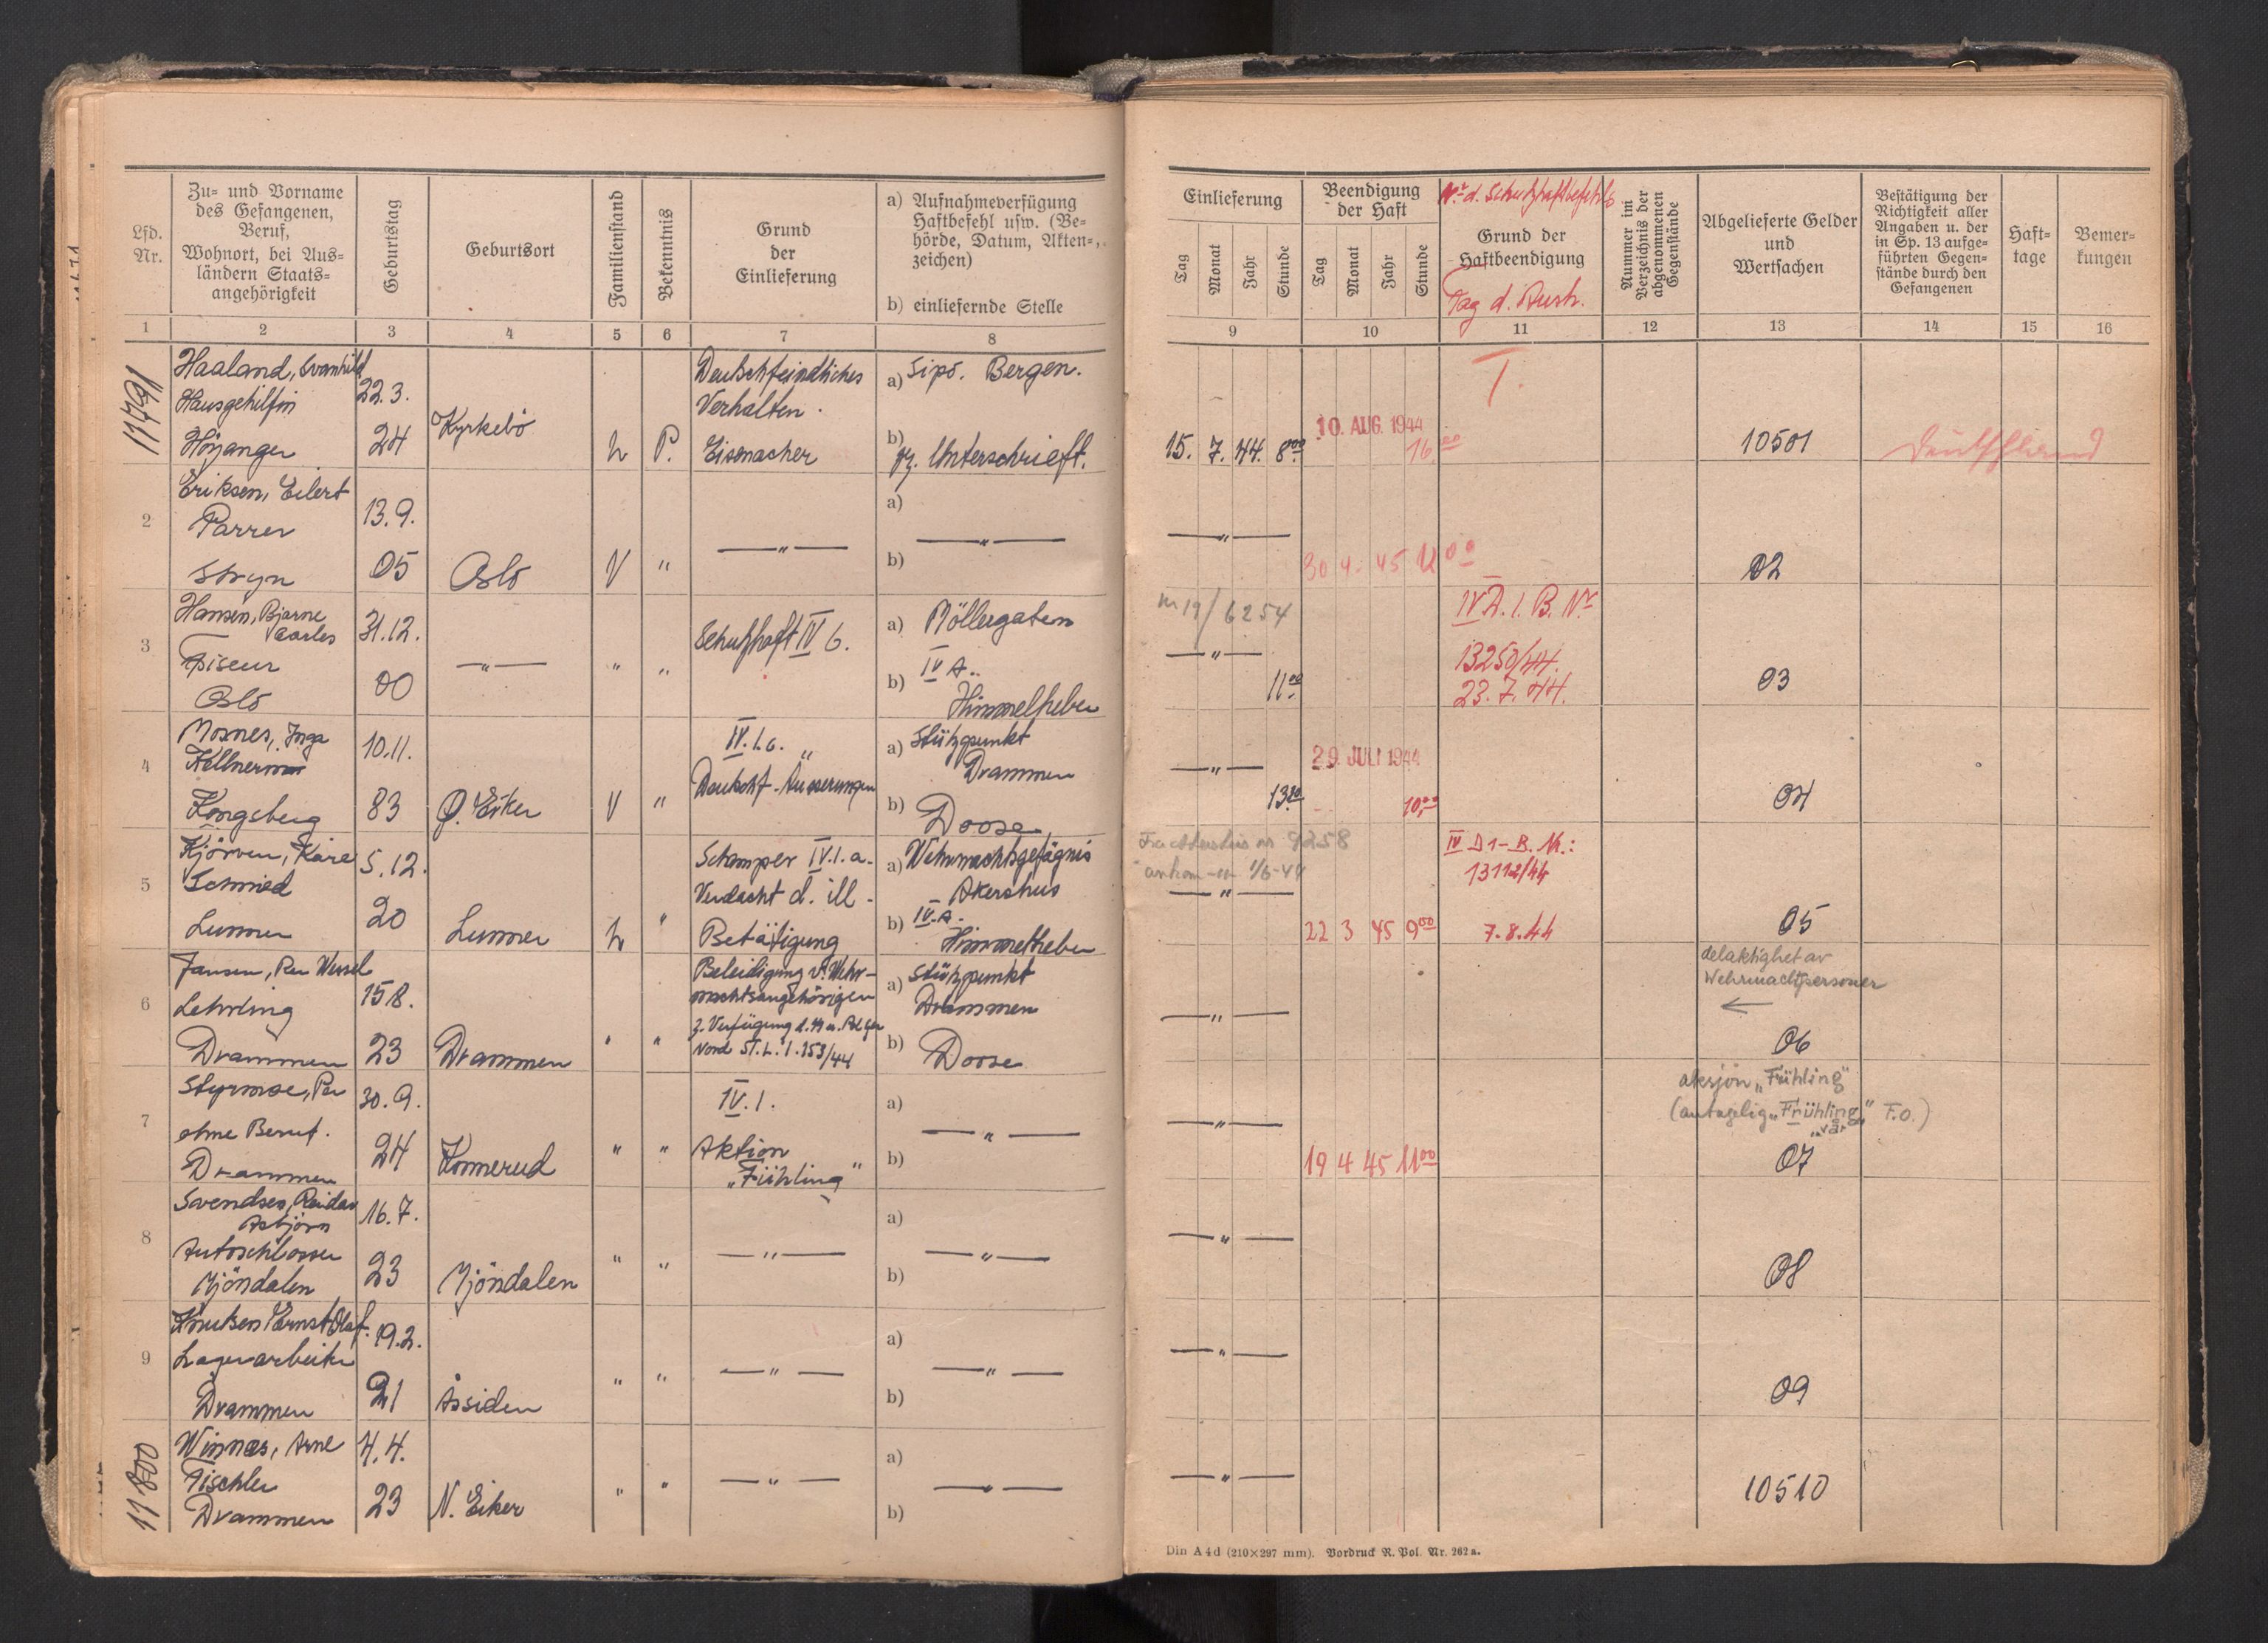 Lfd. Nr.
Zu- und Vorname des Gefangenen, Beruf, Wohnort, bei Ausländern Staatsangehörigkeit
Geburtstag
Geburtsort
Familienstand
Bekenntnis
Grund der Einlieferung
a) Aufnahmeverfügung Haftbefehl usw. (Behörde, Datum, Aktenzeichen)
b) einliefernde Stelle
1 2 3 4 5 6 7 8
11791
Haaland, Svanhild
Hausgehilfin
Höyanger
22.3.
24
Kyrkebö
L
P.
Deutschfeindliches
Verhalten.
Eisenacher
a) Sipo. Bergen.
b) gz. Unterschrieft.
2
Eriksen, Eilert
Parrer
Stryn
13.9.
05
Oslo
V "
— " —
a)
— " —
b)
3
Hansen, Bjarne
Caarles
Friseur
Oslo
31.12.
00
— " —
" "
Schutzhaft IV 6.
a) Möllergaten
b) IV A..
Himmelheber
4
Mosnes, Inga
Kellnerin
Kongsberg
10.11.
83
Ø. Eiker
V "
IV.1.a. "
Deutschf. Äusserungen
a) Stützpunkt
Drammen
b) Doose
5
Kjörven, Kåre
Schmied
Lunner
5.12.
20
Lunner
L "
Schamper IV.1.a.
Verdacht d. ill.
Betätigung
a) Wehrmachtsgefägnis
Akershus
b) IV.A.
Himmelheber
6
Jansen, Per Wessel
Lehrling
Drammen
15.8.
23
Drammen
" "
Beleidigung v. Wehr-
machtsangehörigen
z. Verfügung d. SS u. Pol. Ger
Nord ST. L. 1. 353/44
a) Stützpunkt
Drammen
b) Doose
7
Styrmoe, Per
ohne Beruf.
Drammen
30.9.
24
Konnerud
" "
IV.1.
Aktion
"Fühling"
a)
— " —
b)
8
Svendsen, Reidar
Asbjörn
Autoschlosser
Mjöndalen
16.7.
23
Mjöndalen
" "
— " —
a)
— " —
b)
9
Knutsen Ernst Olaf.
Lagerarbeiter
Drammen
19.2.
21
Åssiden
" "
— " —
a)
— " —
b)
11800
Winnæs, Arne
Tischler
Drammen
4.4.
23
N. Eiker
" "
— " —
a)
— " —
b)
Einlieferung
Tag Monat Jahr Stunde
Beendigung der Haft
Tag Monat Jahr Stunde
Nr. d. Schutzhaftbefehls
Grund der Haftbeendigung
Tag d. Ausst.
Nummer in Verzeichnis der abgenommenen Gegenstände
Abgelieferte Gelder und Wertsachen
Bestätigung der Richtigkeit aller Angaben u. der in Sp. 13 aufgeführten Gegenstände durch den Gefangenen
Hafttage
Bemerkungen
9 10 11 12 13 14 15 16
T.
10. AUG. 1944
15. 7. 44. 8⁰⁰
16⁰⁰
10501
Deutschland
— " —
30 4. 45 12⁰⁰
02
nr 19/6254
IV A. 1. B. Nr
— " —
13250/44.
11⁰⁰
23. 7. 44.
03
29. JULI 1944
— " —
13³⁰
10⁰⁰
04
9258
ankom 1/6-44
IV D 1 – B. Nr.:
13112/44
— " —
22 3 45 9⁰⁰
7.8.44
05
delaktighet av
Wehrmachtpersoner
←
— " —
06
aksjon "Frühling"
(antagelig "Frühling" F.O.)
"vår"
— " —
19 4 45 11⁰⁰
07
— " —
08
— " —
09
— " —
10510
Din A4d (210×297 mm). Vordruck R. Pol. Nr. 262a.